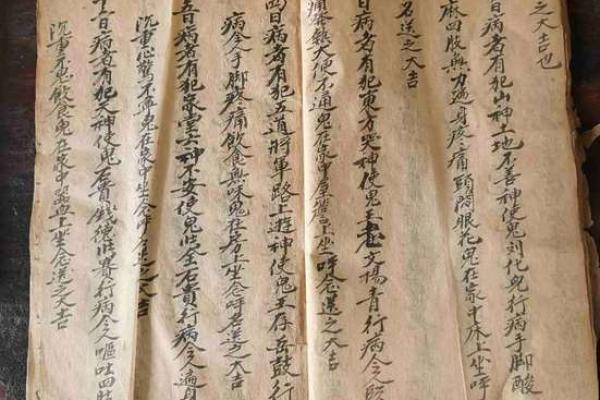 之大吉也
日病者有犯山神土地不善神使鬼刘化兒行病手脚酸
麻四肢無力遍身疼痛頭悶眼花鬼在家中床上坐呼
名送之大吉
日病者有犯東方哭神使鬼王文楊青行病令
大便不通鬼在家中上坐呼念送之大吉
四日病者有犯五道將軍路上遊神使鬼王存鼓行
病令人手脚疼痛飲食無味鬼在房上坐念呼名送之大吉
五日病者有犯家堂六神不安使鬼金石貴行病令人遍身
沉重心驚不寧鬼在家中坐念呼名送之大吉
日病者有犯天神使鬼石賣錢德賽行病令人嘔吐四肢
沉重不思飲食鬼在家中器皿上坐念送之大吉